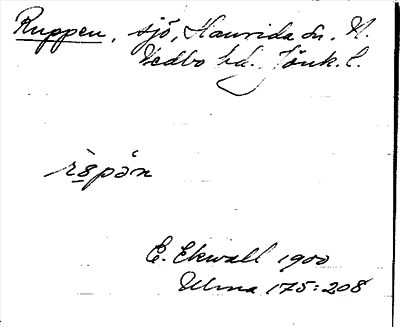 Ruppen, sjö, Haurida sn. N.
Vedbo hd. Jönk. l.
rø̀pə̀n
E. Ekwall 1900
Ulma 175:208